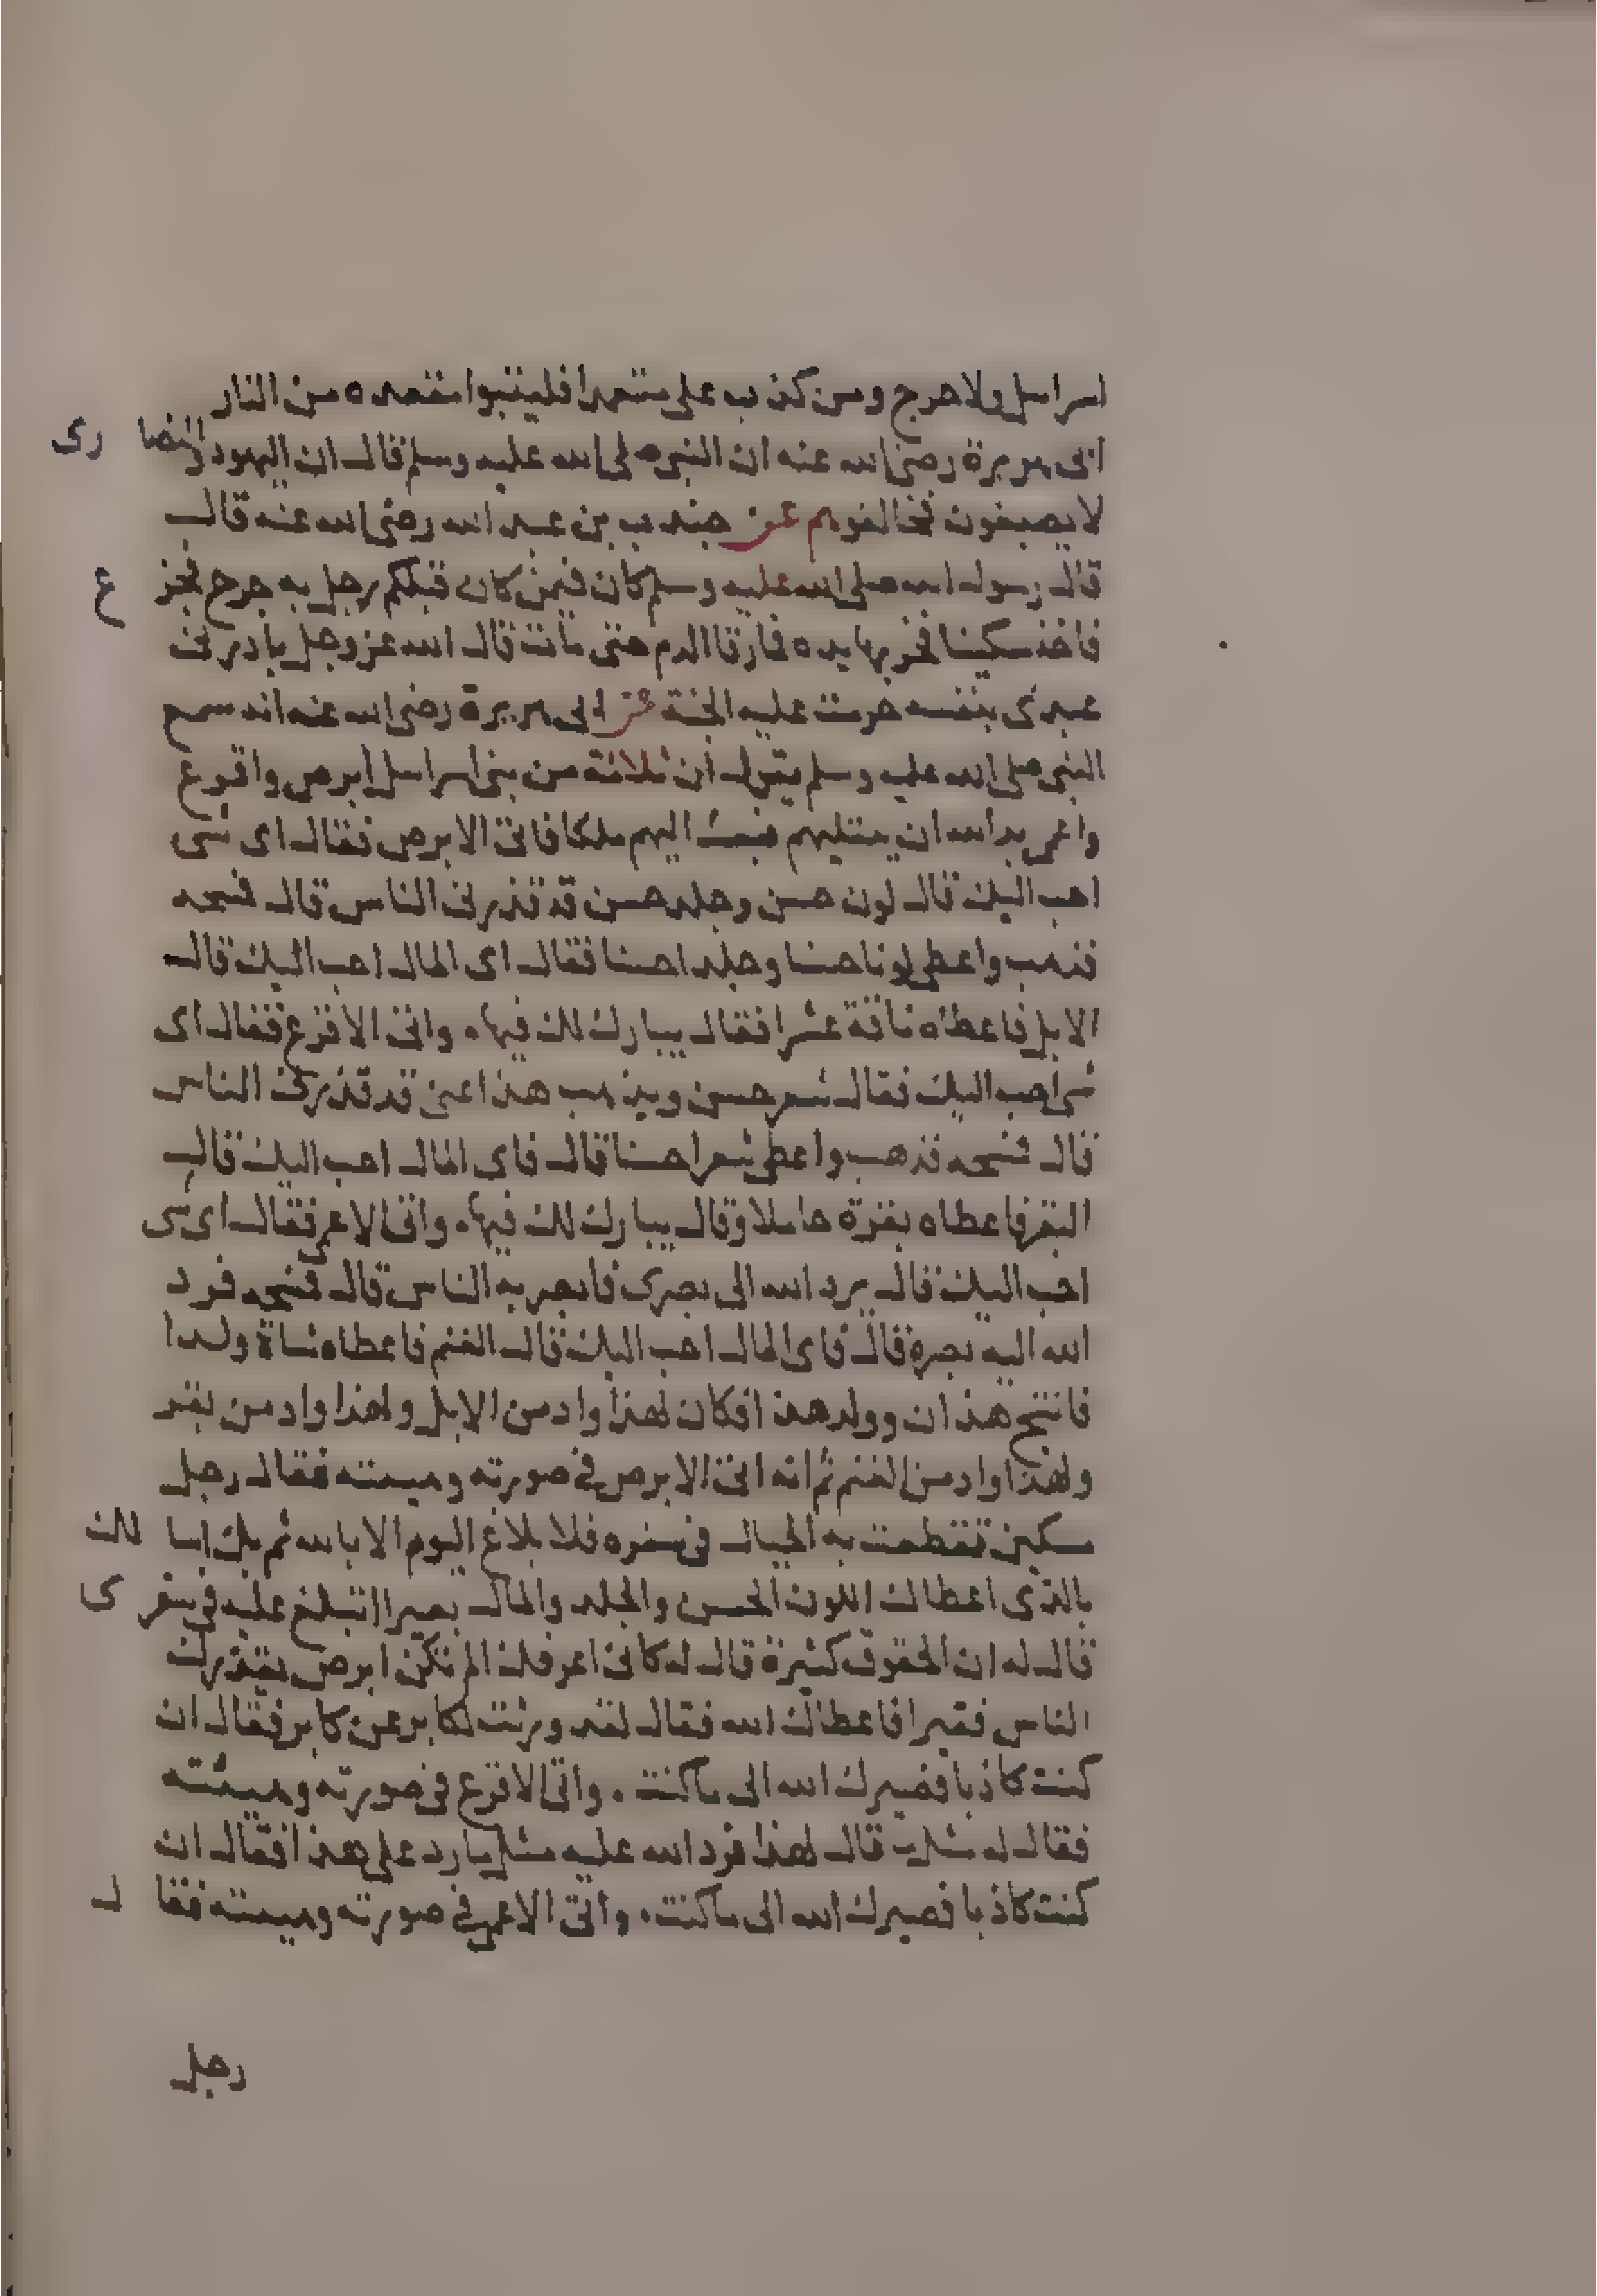 اسراىل ولا حرج ومن كذب على متعمدا فليتبوا مقعده من النار
ابى هريرة رضى الله عنه ان النبي صلى الله عليه وسلم قال ان اليهود والنصارى
لا يصبغون فخالفوهم عن جندب بن عبد الله رضى الله عنه قال
قال رسول الله صلى الله عليه وسلم كان فيمن كان قبلكم رجل به جرح فجزع
فاخذ سكينا فحز بها يده فما رقا الدم حتى مات قال الله عز وجل بادرنى
عبدى بنفسه حرمت عليه الجنة عن ابى هريرة رضى الله عنه انه سمع
النبي صلى الله عليه وسلم يقول ان ثلاثة من بنى اسراىل ابرص واقرع
واعمى بدا لله ان يبتليهم فبعث اليهم ملكا فاتى الابرص فقال اى شى
احب اليك قال لون حسن وجلد حسن قد قذرنى الناس قال فمسحه
فذهب واعطى لونا حسنا وجلدا حسنا فقال اى المال احب اليك قال
الابل فاعطاه ناقة عشرا فقال يبارك لك فيها. واتى الاقرع فقال اى
شى احب اليك فقال شعر حسن ويذهب هذا عنى قد قذرنى الناس
قال فمسحه فذهب واعطى شعرا حسنا قال فاى المال احب اليك قال
البقر فاعطاه بقرة حاملا وقال يبارك لك فيها. واتى الاعمى فقال اى شى
احب اليك قال يرد الله الى بصرى فابصر به الناس قال فمسحه فرد
الله اليه بصره قال فاى المال احب اليك قال الغنم فاعطاه شاة ولدا
فانتج هذان وولد هذا فكان لهذا واد من الابل ولهذا واد من بقر
ولهذا واد من الغنم ثم انه اتى الابرص في صورته وهيىته فقال رجل
مسكين تقطعت به الحبال في سفره فلا بلاغ اليوم الا بالله ثم بك اسالك
بالذى اعطاك اللون الحسن والجلد والمال بعيرا اتبلغ عليه في سفرى
قال له ان الحقوق كثيرة قال له كانى اعرفك الم تكن ابرص يقذرك
الناس فقيرا فاعطاك الله فقال لقد ورثت لكابر عن كابر فقال ان
كنت كاذبا فصيرك الله الى ما كنت. واتى الاقرع في صورته وهيئته
فقال له مثل ما قال لهذا فرد الله عليه مثل ما رد على هذا فقال ان
كنت كاذبا فصيرك الله الى ما كنت. واتى الاعمى في صورته وهيىته فقال
رجل